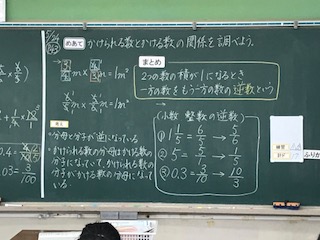 5/24
めあて かけられる数とかける数の関係を調べよう。
まとめ
2つの数の積が1になるとき
一方の数をもう一方の数の逆数という。
m × m = 1m²
考え
・分母と分子が逆になっている
・かけられる数の分母はかける数の
分子になっていて、かけられる数の
分子がかける数の分母になって
いる。
小数 整数の逆数
① 1 1/5 = 6/5 → 5/6
② 5 = 5/1 → 1/5
③ 0.3 = 3/10 → 10/3
0.4 =
03 = 3/100
練習
ふりか